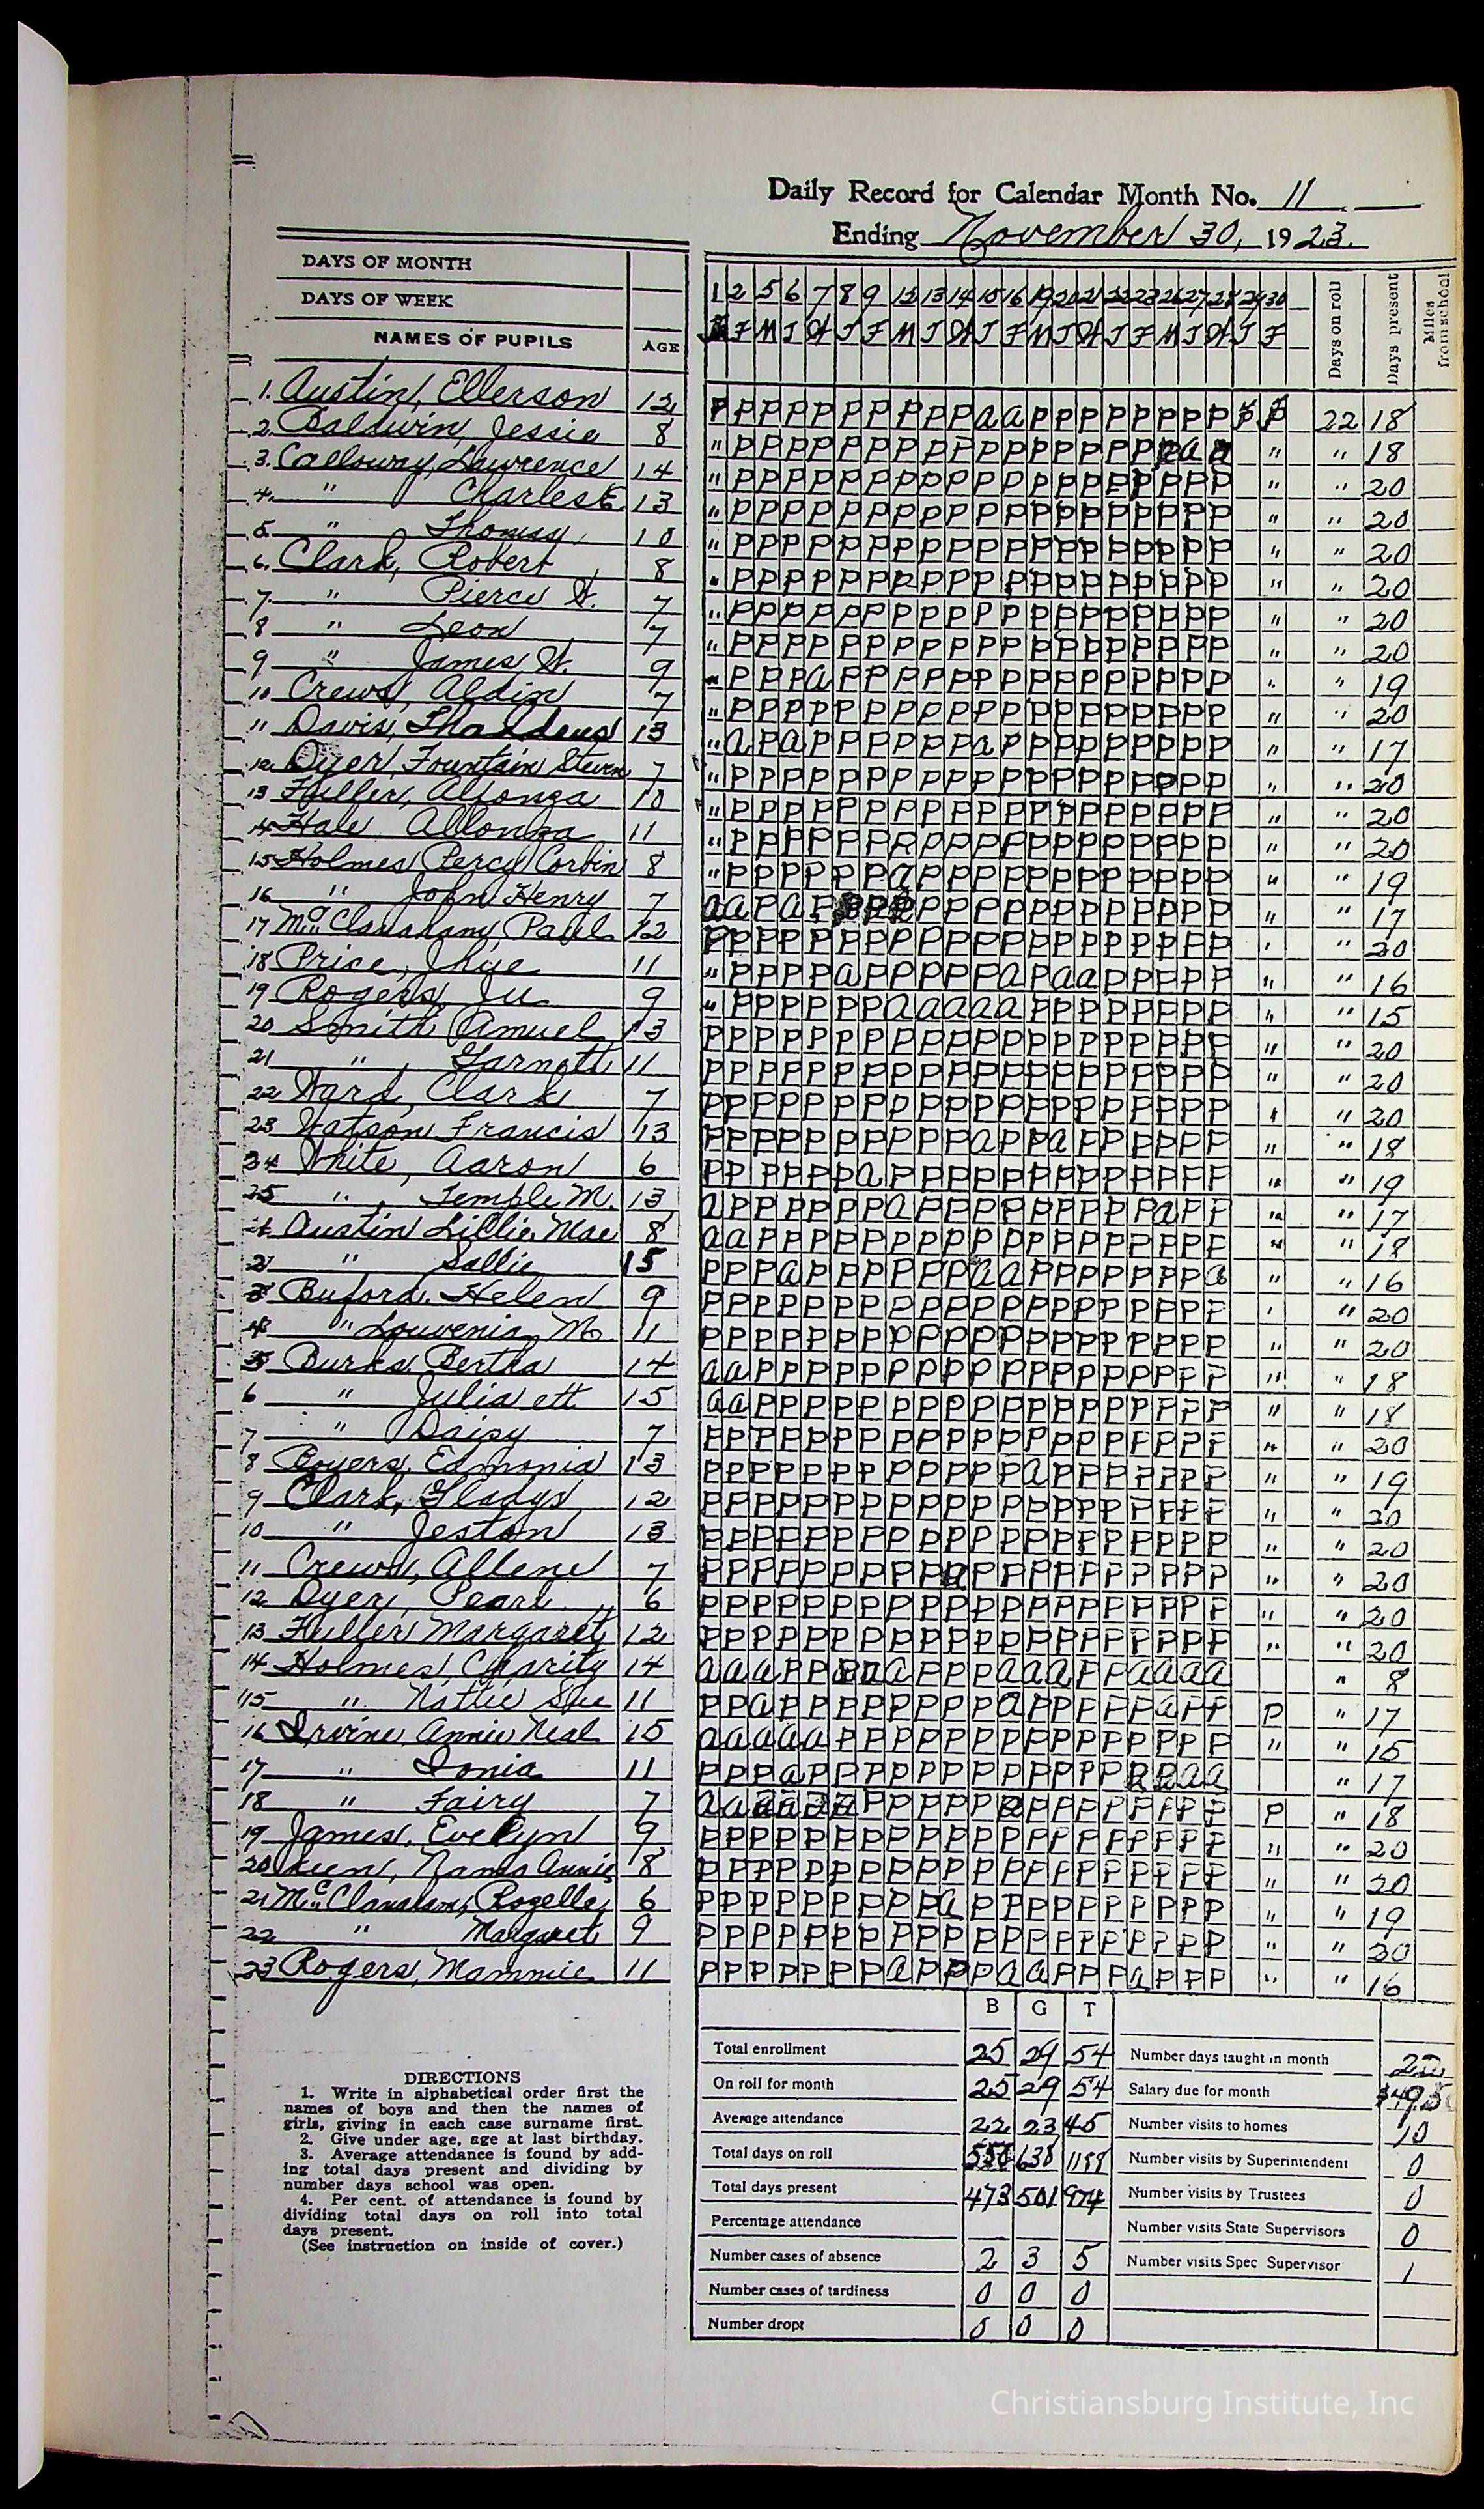 Daily Record for Calendar Month No. 11
Ending November 30, 1923.
DAYS OF MONTH 1 2 5 6 7 8 9 12 13 14 15 16 19 20 21 22 23 26 27 28 29 30 Days on roll Days present Miles from school
DAYS OF WEEK F M T W T F M T W T F M T W T F M T W T F
NAMES OF PUPILS AGE
1. Austin, Ellerson 12 P P P P P P P P P P a a P P P P P P P P P P 22 18
2. Baldwin, Jessie 8 " P P P P P P P P P P P P P P P P a " " 18
3. Calloway, Lawrence 14 " P P P P P P P P P P P P P P P P P P P " " 20
4. " Charles E. 13 " P P P P P P P P P P P P P P P P P P P " " 20
5. " Thomas 10 " P P P P P P P P P P P P P P P P P P P " " 20
6. Clark, Robert 8 " P P P P P P P P P P P P P P P P P P P " " 20
7. " Pierce W. 7 " P P P P P P P P P P P P P P P P P P P " " 20
8 " Leon 7 " P P P P P P P P P P P P P P P P P P P " " 20
9 " James W. 9 " P P P a P P P P P P P P P P P P P P P " " 19
10 Crews, Aldin 7 " P P P P P P P P P P P P P P P P P P P " " 20
11 Davis, Thaddeus 13 " a P a P P P P P P a P P P P P P P P P " " 17
12. Dyer, Fountain Steven 7 " P P P P P P P P P P P P P P P P P P P " " 20
13 Fuller, Alfonza 10 " P P P P P P P P P P P P P P P P P P P " " 20
14 Hale Allonza 11 " P P P P P P P P P P P P P P P P P P P " " 20
15 Holmes, Percy Corbin 8 " P P P P P P a P P P P P P P P P P P P " " 19
16 " John Henry 7 a a P a P P P P P P P P P P P P P P P P " " 17
17 Paul 12 P P P P P P P P P P P P P P P P P P P P " " 20
18 Price, 11 " P P P P a P P P P P a P a a P P P P P " " 16
19 Rogers, 9 " P P P P P P a a a a a P P P P P P P P " " 15
20 Smith, 13 P P P P P P P P P P P P P P P P P P P P " " 20
21 " , Garnett 11 P P P P P P P P P P P P P P P P P P P P " " 20
22 Ward, Clark 7 P P P P P P P P P P P P P P P P P P P P " " 20
23 Watson Francis 13 P P P P P P P P P P a P P a P P P P P P " " 18
24 White, Aaron 6 P P P P P P a P P P P P P P P P P P P P " " 19
25 " , Temple M. 13 a P P P P P P a P P P P P P P P P a P P " " 17
1 Austin Lillie Mae 8 a a P P P P P P P P P P P P P P P P P P " " 18
2 " Sallie 15 P P P a P P P P P P a a P P P P P P P a " " 16
3 Buford, Helen 9 P P P P P P P P P P P P P P P P P P P P " " 20
4 " Louvenia M. 11 P P P P P P P P P P P P P P P P P P P P " " 20
5 Burks, Bertha 14 a a P P P P P P P P P P P P P P P P P P " " 18
6 " Julia ett 15 a a P P P P P P P P P P P P P P P P P P " " 18
7 " Daisy 7 P P P P P P P P P P P P P P P P P P P P " " 20
8 Boyers, Edmonia 13 P P P P P P P P P P P P a P P P P P P P " " 19
9 Clark, Gladys 12 P P P P P P P P P P P P P P P P P P P P " " 20
10 " Jeston 13 P P P P P P P P P P P P P P P P P P P P " " 20
11 Crews, Allene 7 P P P P P P P P P a P P P P P P P P P P " " 20
12 Dyer, Pearl 6 P P P P P P P P P P P P P P P P P P P P " " 20
13 Fuller Margaret 12 P P P P P P P P P P P P P P P P P P P P " " 20
14 Holmes, Charity 14 a a a P P a a P P P a a a P P a a a a " 8
15 " Nattie Sue 11 P P a P P P P P P P P a P P P P P a P P P " 17
16 Irvine, Annie Neal 15 a a a a a P P P P P P P P P P P P P P P " " 15
17 " Ionia 11 P P P a P P P P P P P P P P P P a a a a " 17
18 " Fairy 7 a a P P P P P P P P P P P P P P " 18
19 James, Evelyn 9 P P P P P P P P P P P P P P P P P P P P " " 20
20 Annie 8 P P P P P P P P P P P P P P P P P P P P " " 20
21 McClanahan, Rozelle 6 P P P P P P P P P a P P P P P P P P P P " " 19
22 " Margaret 9 P P P P P P P P P P P P P P P P P P P P " " 20
23 Rogers, Mammie 11 P P P P P P P a P P P a a P P P a P P P " " 16
B G T
Total enrollment 25 29 54 Number days taught in month 22
On roll for month 25 29 54 Salary due for month
Average attendance 22 23 45 Number visits to homes 10
Total days on roll 550 638 1188 Number visits by Superintendent 0
Total days present 473 501 974 Number visits by Trustees 0
Percentage attendance Number visits State Supervisors 0
Number cases of absence 2 3 5 Number visits Spec Supervisor 1
Number cases of tardiness 0 0 0
Number dropt 0 0 0
DIRECTIONS
1. Write in alphabetical order first the
names of boys and then the names of
girls, giving in each case surname first.
2. Give under age, age at last birthday.
3. Average attendance is found by add-
ing total days present and dividing by
number days school was open.
4. Per cent. of attendance is found by
dividing total days on roll into total
days present.
(See instruction on inside of cover.)
Christiansburg Institute, Inc